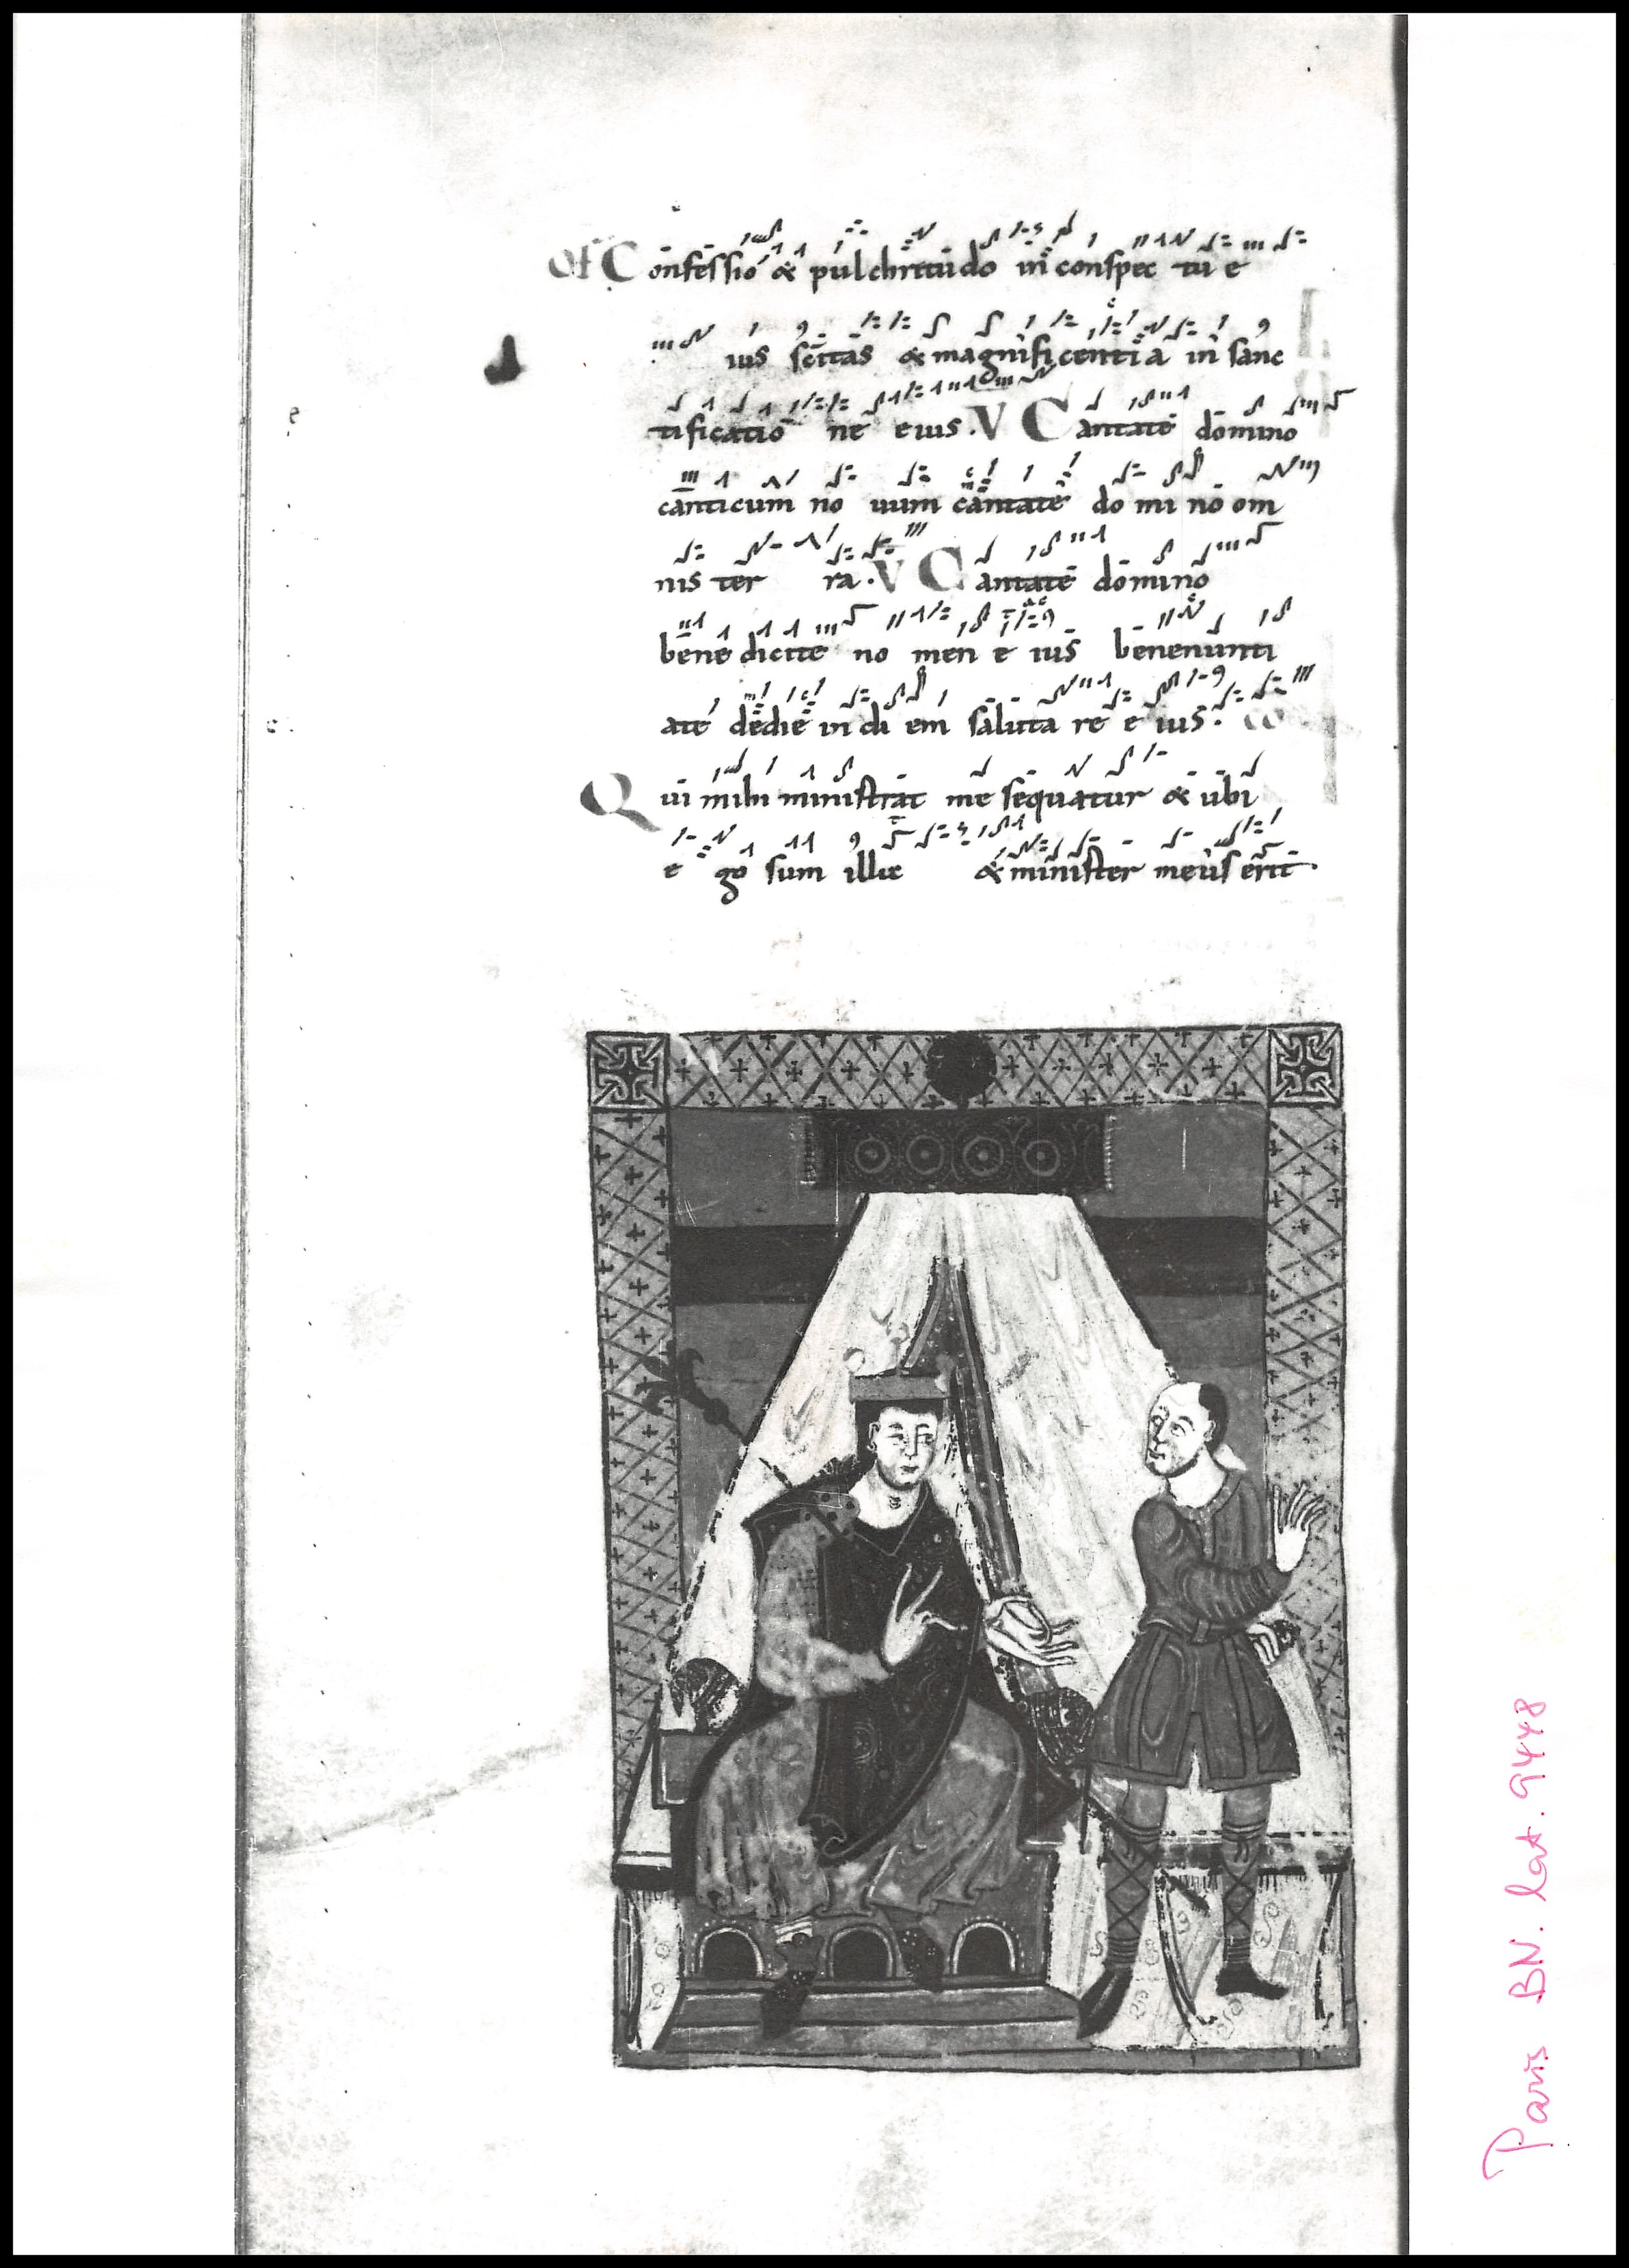 OF Confessio & pulchritudo in conspec tu e
ius sc̄itas & magnificentia in sanc
tificatio ne eius. V Cantate domino
canticum no uum cantate do mi no om
nis ter ra. V Cantate domino
bene dicite no men e ius benenunti
ate dedie in di em saluta re e ius. CO
Qui mihi ministrat me sequatur & ubi
e go sum illic & minister meus erit
Paris BN. lat. 9448